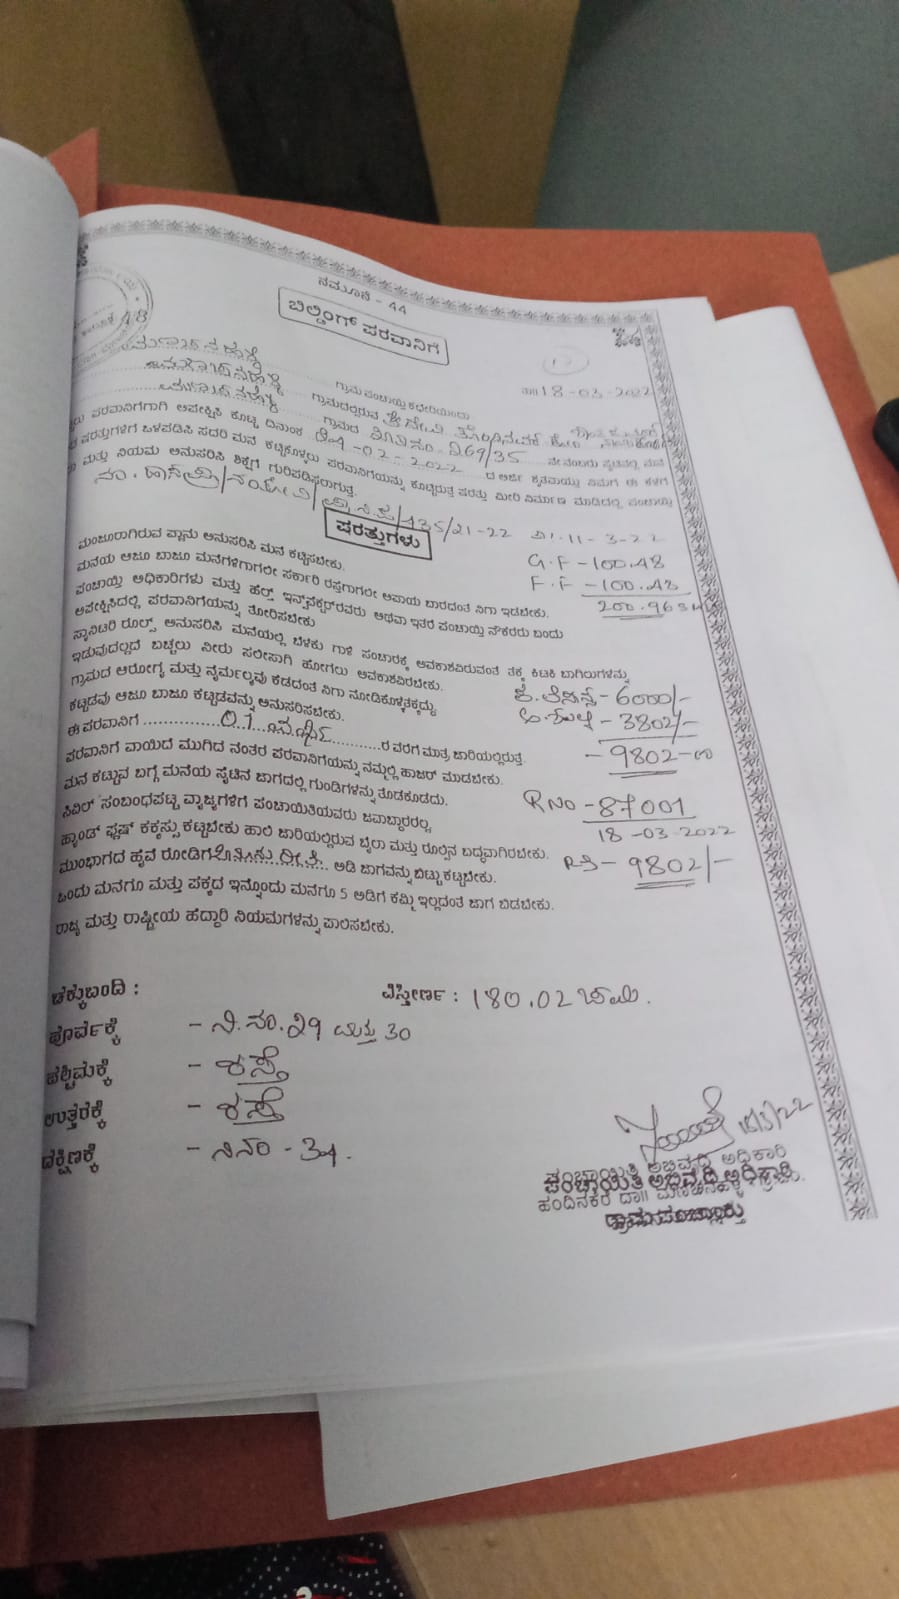 ನಮೂನೆ - 44
ಬಿಲ್ಡಿಂಗ್ ಪರವಾನಿಗೆ
48
ಗ್ರಾಮ ಪಂಚಾಯ್ತಿ ಕಛೇರಿಯಿಂದಾ 18-03-2022
ಗ್ರಾಮದಲ್ಲಿರುವ ಶ್ರೀ
ಗ್ರಾಮದ 269/35 ನೇ ನಂಬರು
ಪರವಾನಿಗೆಗಾಗಿ ಅಪೇಕ್ಷಿಸಿ ಕೊಟ್ಟ ದಿನಾಂಕ -02-2022 ರ ಅರ್ಜಿ ನಿಮಗೆ ಈ ಕೆಳಗೆ
ಷರತ್ತುಗಳಿಗೆ ಒಳಪಡಿಸಿ ಸದರಿ ಮನೆ ಕಟ್ಟಿಕೊಳ್ಳಲು ಪರವಾನಿಗೆಯನ್ನು ಕೊಟ್ಟಿರುತ್ತೆ ಷರತ್ತು ಮೀರಿ ನಿರ್ಮಾಣ ಮಾಡಿದಲ್ಲಿ ಪಂಚಾಯ್ತಿ
ಮತ್ತು ನಿಯಮ ಅನುಸರಿಸಿ ಶಿಕ್ಷೆಗೆ ಗುರಿಪಡಿಸಲಾಗುತ್ತೆ.
/435/21-22 ದಿ: 11-3-22
ಷರತ್ತುಗಳು
G.F - 100.48
F.F - 100.48
200.96
ಮಂಜೂರಾಗಿರುವ ಪ್ಲಾನು ಅನುಸರಿಸಿ ಮನೆ ಕಟ್ಟಿಸಬೇಕು.
ಮನೆಯ ಆಜೂ ಬಾಜೂ ಮನೆಗಳಿಗಾಗಲೀ ಸರ್ಕಾರಿ ರಸ್ತೆಗಾಗಲೀ ಅಪಾಯ ಬಾರದಂತೆ ನಿಗಾ ಇಡಬೇಕು.
ಪಂಚಾಯ್ತಿ ಅಧಿಕಾರಿಗಳು ಮತ್ತು ಹೆಲ್ತ್ ಇನ್ಸ್‌ಪೆಕ್ಟರ್‌ರವರು ಅಥವಾ ಇತರೆ ಪಂಚಾಯ್ತಿ ನೌಕರರು ಬಂದು
ಅಪೇಕ್ಷಿಸಿದಲ್ಲಿ ಪರವಾನಿಗೆಯನ್ನು ತೋರಿಸಬೇಕು
ಸ್ಯಾನಿಟರಿ ರೂಲ್ಸ್ ಅನುಸರಿಸಿ ಮನೆಯಲ್ಲಿ ಬೆಳಕು ಗಾಳಿ ಸಂಚಾರಕ್ಕೆ ಅವಕಾಶವಿರುವಂತೆ ತಕ್ಕ ಕಿಟಕಿ ಬಾಗಿಲುಗಳನ್ನು
ಇಡುವುದಲ್ಲದೆ ಬಚ್ಚಲು ನೀರು ಸಲೀಸಾಗಿ ಹೋಗಲು ಅವಕಾಶವಿರಬೇಕು.
ಗ್ರಾಮದ ಆರೋಗ್ಯ ಮತ್ತು ನೈರ್ಮಲ್ಯವು ಕೆಡದಂತೆ ನಿಗಾ ನೋಡಿಕೊಳ್ಳತಕ್ಕದ್ದು
ಕಟ್ಟಡವು ಆಜೂ ಬಾಜೂ ಕಟ್ಟಡವನ್ನು ಅನುಸರಿಸಬೇಕು.
- 6000/-
- 3802/-
- 9802-00
ಈ ಪರವಾನಿಗೆ 01 ರ ವರೆಗೆ ಮಾತ್ರ ಜಾರಿಯಲ್ಲಿರುತ್ತೆ.
ಪರವಾನಿಗೆ ವಾಯಿದೆ ಮುಗಿದ ನಂತರ ಪರವಾನಿಗೆಯನ್ನು ನಮ್ಮಲ್ಲಿ ಹಾಜರ್ ಮಾಡಬೇಕು.
ಮನೆ ಕಟ್ಟುವ ಬಗ್ಗೆ ಮನೆಯ ಸೈಟಿನ ಜಾಗದಲ್ಲಿ ಗುಂಡಿಗಳನ್ನು ತೊಡಕೂಡದು.
ಸಿವಿಲ್ ಸಂಬಂಧಪಟ್ಟ ವ್ಯಾಜ್ಯಗಳಿಗೆ ಪಂಚಾಯಿತಿಯವರು ಜವಾಬ್ದಾರರಲ್ಲ
R NO - 87001
18-03-2022
ಹ್ಯಾಂಡ್ ಫ್ಲಷ್ ಕಕ್ಕಸ್ಸು ಕಟ್ಟಬೇಕು ಹಾಲಿ ಜಾರಿಯಲ್ಲಿರುವ ಬೈಲಾ ಮತ್ತು ರೂಲ್ಸಿನ ಬದ್ಧವಾಗಿರಬೇಕು.
RS - 9802/-
ಮುಂಭಾಗದ ಹೈವೆ ರೋಡಿಗೆ ಅಡಿ ಜಾಗವನ್ನು ಬಿಟ್ಟು ಕಟ್ಟಬೇಕು.
ಒಂದು ಮನೆಗೂ ಮತ್ತು ಪಕ್ಕದ ಇನ್ನೊಂದು ಮನೆಗೂ 5 ಅಡಿಗೆ ಕಮ್ಮಿ ಇಲ್ಲದಂತೆ ಜಾಗ ಬಿಡಬೇಕು.
ರಾಜ್ಯ ಮತ್ತು ರಾಷ್ಟ್ರೀಯ ಹೆದ್ದಾರಿ ನಿಯಮಗಳನ್ನು ಪಾಲಿಸಬೇಕು.
ಚೆಕ್ಕುಬಂದಿ : ವಿಸ್ತೀರ್ಣ : 180.02 ಚಮಿ.
ಪೂರ್ವಕ್ಕೆ - ನಿ.ಸಂ. 29 ಮತ್ತು 30
ಪಶ್ಚಿಮಕ್ಕೆ - ರಸ್ತೆ
ಉತ್ತರಕ್ಕೆ - ರಸ್ತೆ
ದಕ್ಷಿಣಕ್ಕೆ - ನಿಸಂ - 34.
18/3/22
ಪಂಚಾಯಿತಿ ಅಭಿವೃದ್ಧಿ ಅಧಿಕಾರಿ
ಪಂಚಾಯಿತಿ ಅಭಿವೃದ್ಧಿ ಅಧಿಕಾರಿ